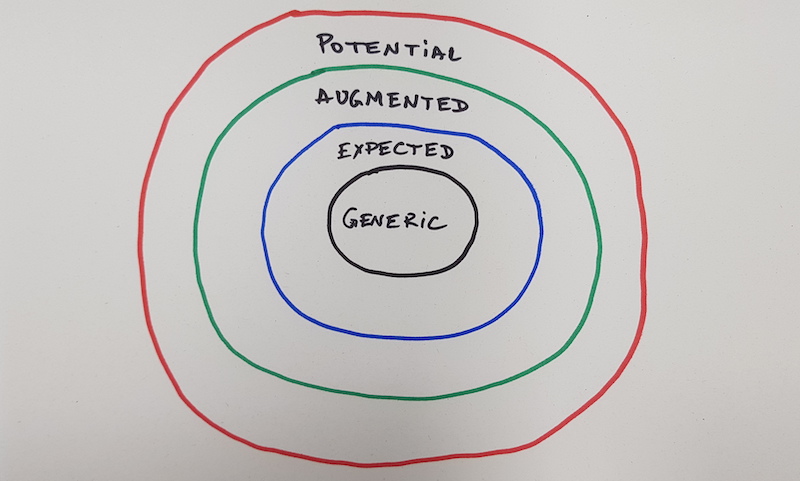 POTENTIAL
AUGMENTED
EXPECTED
GENERIC